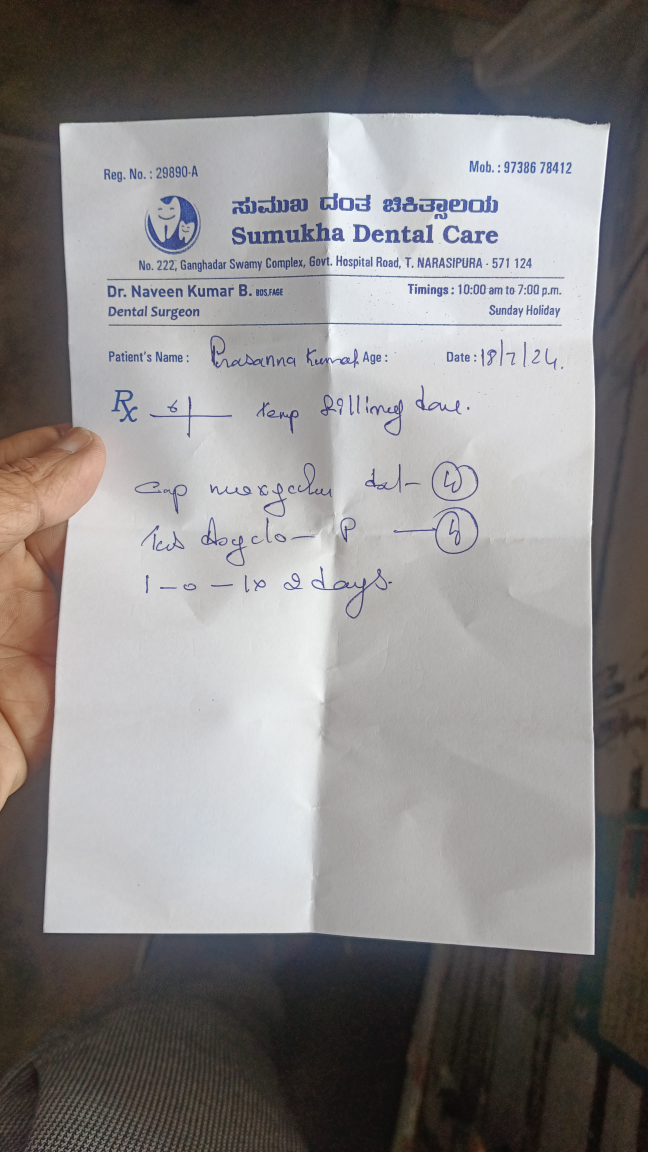 Reg. No. : 29890-A
Mob. : 97386 78412
ಸುಮುಖ ದಂತ ಚಿಕಿತ್ಸಾಲಯ
Sumukha Dental Care
No. 222, Ganghadar Swamy Complex, Govt. Hospital Road, T. NARASIPURA - 571 124
Dr. Naveen Kumar B. BDS,FAGE
Timings : 10:00 am to 7:00 p.m.
Dental Surgeon
Sunday Holiday
Patient's Name : Prasanna Kumar Age : Date : 18/7/24.
Rx 6 temp filling done.
Cap
Tab P
1-0-1x 2 days.